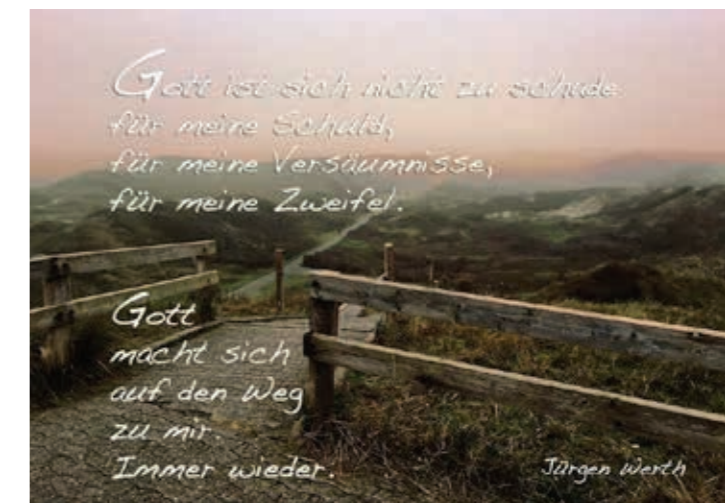 Gott ist sich nicht zu schade
für meine Schuld,
für meine Versäumnisse,
für meine Zweifel.
Gott
macht sich
auf den Weg
zu mir.
Immer wieder.
Jürgen Werth